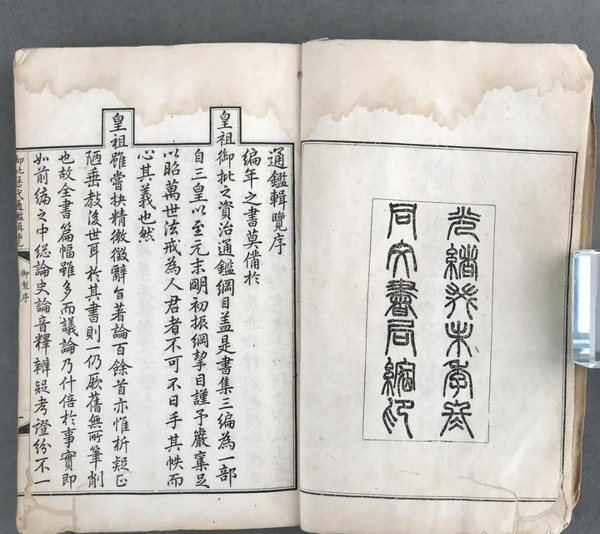 光緒癸未季冬
同文書局縮印
通鑑輯覽序
編年之書莫備於
皇祖御批之資治通鑑綱目葢是書集三編為一部
自三皇以至元末明初振綱挈目謹予嚴奪足
以昭萬世法戒為人君者不可不日手其帙而
心其義也然
皇祖雖嘗抉精微徵辭旨著論百餘首亦惟析疑正
陋垂教後世耳於其書則一仍厥舊無所筆削
也故全書篇幅雖多而議論乃什倍於事實即
如前編之中総論史論音釋辨疑考證紛不一
御批歷代通鑑輯覽
御製序
一